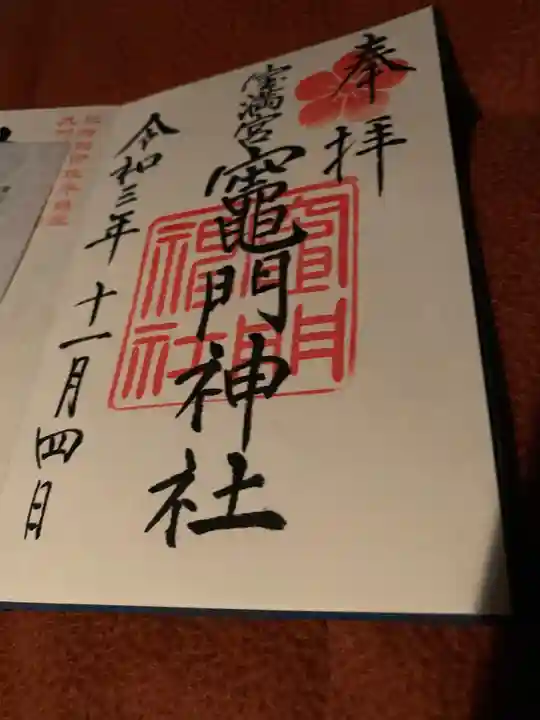 奉拝
宝満宮
竈門神社
竈門神社
令和三年 十一月四日